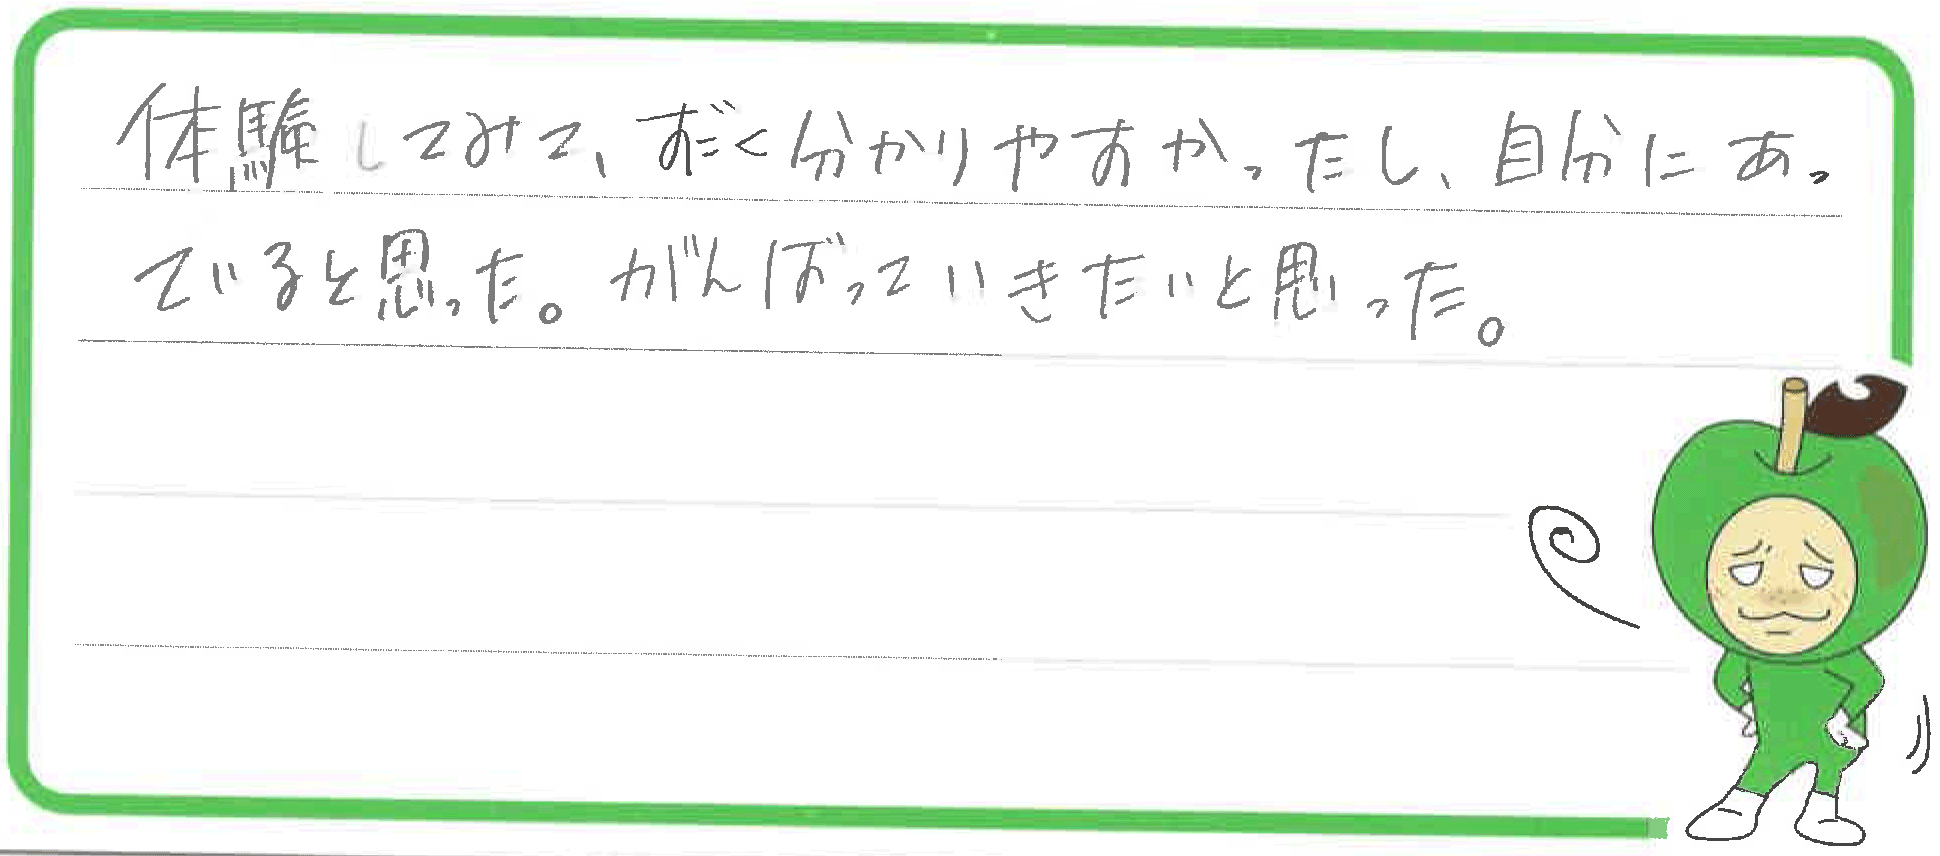 体験してみて、すごく分かりやすかったし、自分にあっ
ていると思った。がんばっていきたいと思った。